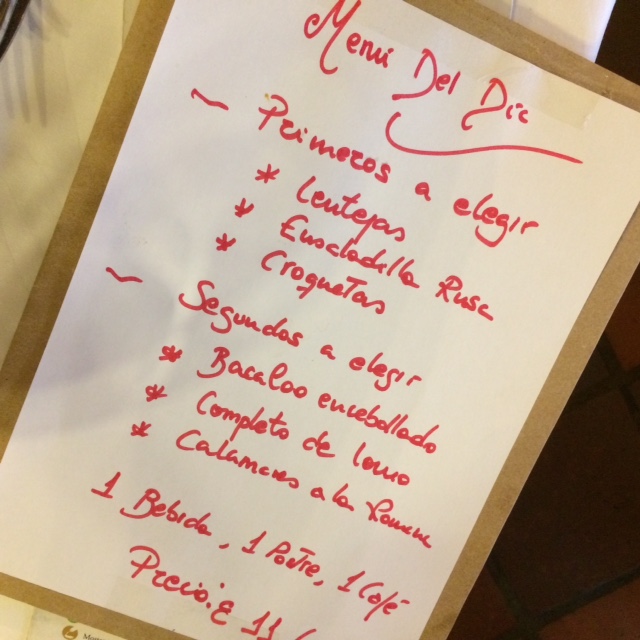 Menú Del Día
~ Primeros a elegir
* Lentejas
* Ensaladilla Rusa
* Croquetas
~ Segundos a elegir
* Bacalao encebollado
* Completo de lomo
* Calamares a la Romana
1 Bebida, 1 Postre, 1 Café
Precio: € 11